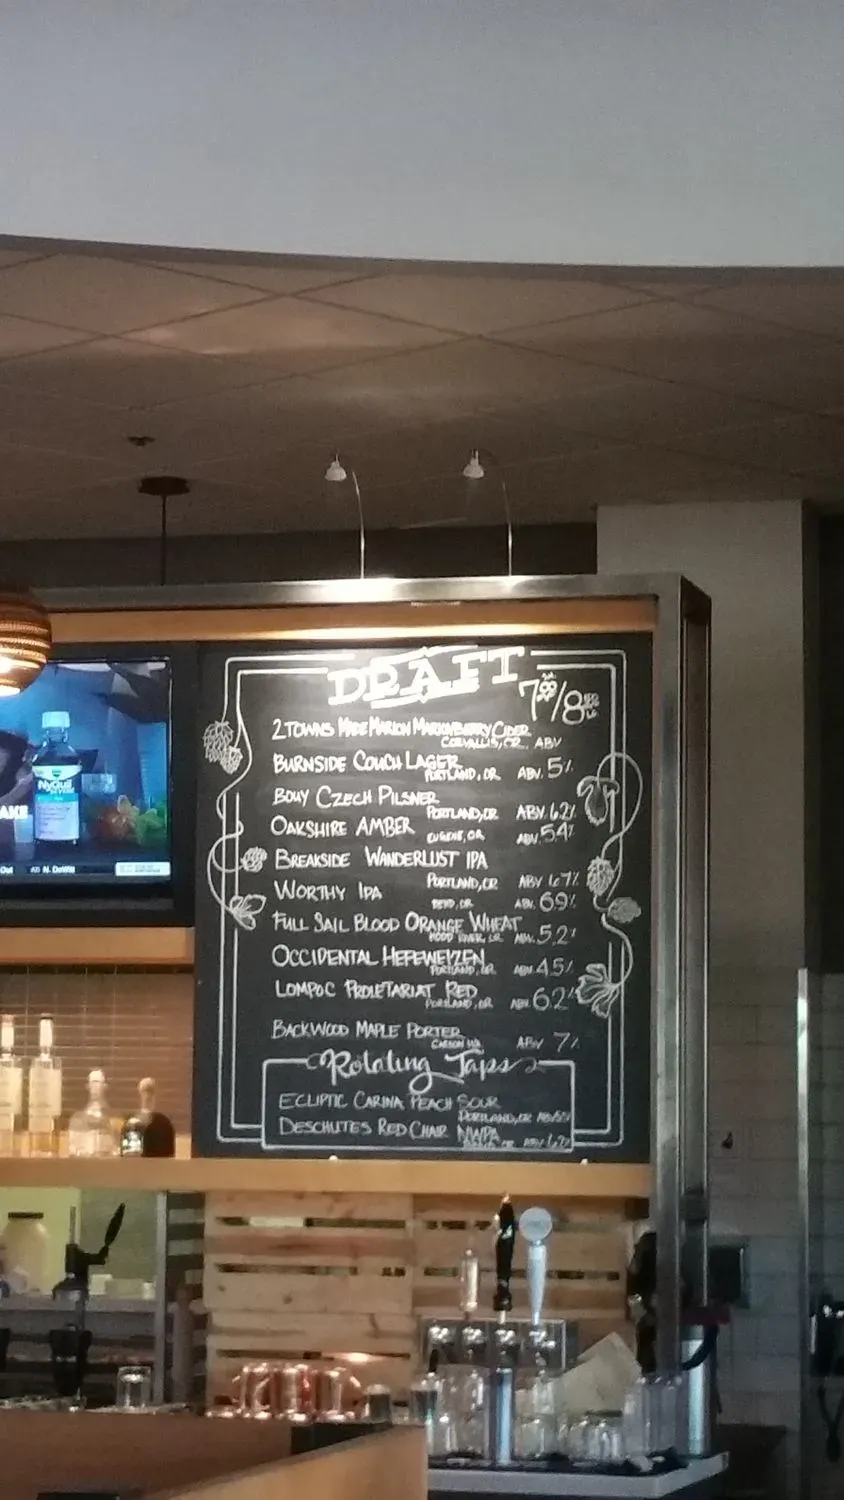 DRAFT
7 /8
2 TOWNS MADE MARION MARIONBERRY CIDER
CORVALLIS, OR ABV
BURNSIDE COUCH LAGER
PORTLAND, OR ABV. 5%
BOUY CZECH PILSNER
PORTLAND, OR ABV. 6.2%
OAKSHIRE AMBER
EUGENE, OR ABV. 5.4%
BREAKSIDE WANDERLUST IPA
PORTLAND, OR ABV 6.7%
WORTHY IPA
BEND, OR ABV. 6.9%
FULL SAIL BLOOD ORANGE WHEAT
HOOD RIVER, OR ABV. 5.2%
OCCIDENTAL HEFEWEIZEN
PORTLAND, OR ABV 4.5%
LOMPOC PROLETARIAT RED
PORTLAND, OR ABV 6.2%
BACKWOOD MAPLE PORTER
CARSON WA ABV 7%
Rotating Taps
ECLIPTIC CARINA PEACH SOUR
PORTLAND, OR ABV
DESCHUTES RED CHAIR NWPA
OR ABV 6.2%
NyQuil
AKE
Out N. DeWitt